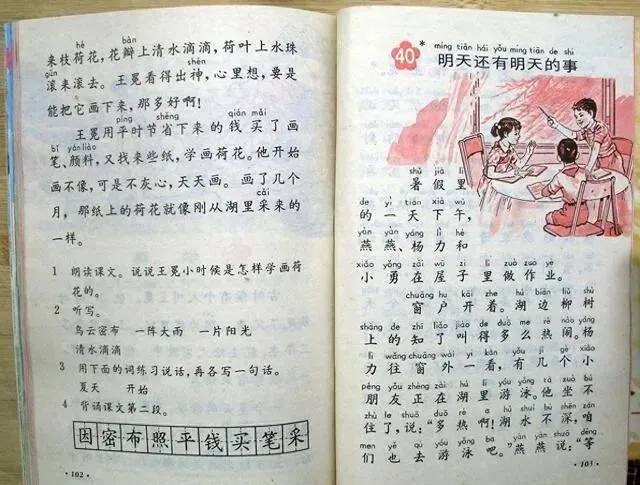 hé bàn
来枝荷花,花瓣上清水滴滴,荷叶上水珠
gǔn shén
滚来滚去。王冕看得出神,心里想,要是
能把它画下来,那多好啊!
píng shěng qián mǎi
王冕用平时节省下来的钱买了画
bǐ yán liào
笔、颜料,又找来些纸,学画荷花。他开始
画不像,可是不灰心,天天画。画了几个
cǎi
月,那纸上的荷花就像刚从湖里采来的
一样。
1 朗读课文。说说王冕小时候是怎样学画荷
花的。
2 听写。
乌云密布 一阵大雨 一片阳光
清水滴滴
3 用下面的词练习说话,再各写一句话。
夏天 开始
4 背诵课文第二段。
因密布照平钱买笔采
·102·
40*
míng tiān hái yǒu míng tiān de shì
明天还有明天的事
shǔ jià lǐ
暑假里
de yì tiān xià wǔ
的一天下午,
yàn yàn yáng lì hé
燕燕、杨力和
xiǎo yǒng zài wū zi lǐ zuò zuò yè
小勇在屋子里做作业。
chuāng hu kāi zhe hú biān liǔ shù
窗户开着。湖边柳树
shàng de zhī liǎo jiào de duō me rè nào yáng
上的知了叫得多么热闹。杨
lì wǎng chuāng wài yí kàn yǒu jǐ gè xiǎo
力往窗外一看,有几个小
péng yǒu zhèng zài hú lǐ yóu yǒng tā zuò bú
朋友正在湖里游泳。他坐不
zhù le shuō duō rè a hú shuǐ bù shēn zán
住了,说:“多热啊!湖水不深,咱
men yě qù yóu yǒng ba yàn yàn shuō děng
们也去游泳吧。”燕燕说:“等
·103·